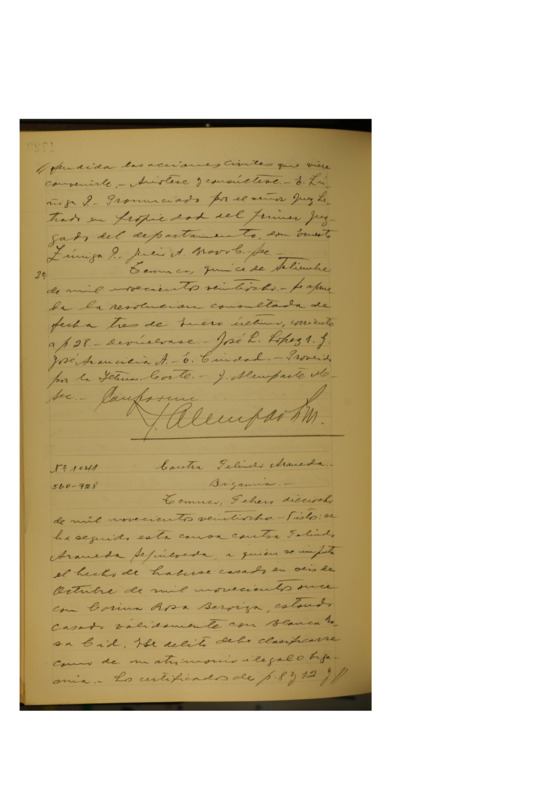 pendida las acciones civiles que viere
convenirle. - Anótese y consúltese. - E. Zú-
ñiga P. Pronunciado por el señor Juez Le-
trado en propiedad del primer Juz-
gado del departamento, don Ernesto
Zúniga P. Julio A. Bravo C. Sec -
2a Temuco, quince de Setiembre
de mil novecientos veintiocho. - Se aprue
ba la resolucion consultada de
fecha tres de Enero último, corriente
a f 28 - devuélvase. - José L. Lopez
José A. - E. Ciudad. - Proveido
por la Iltma. Corte. - J. Alemparte M -
Sec. - Conforme
J. Alemparte M.
No 1041 Contra Galindo Araneda.
560-928 Bigamia. -
Temuco, Febrero dieciocho
de mil novecientos veintiocho - Vistos: se
ha seguido esta causa contra Galindo
Araneda Sepúlveda, a quien se imputa
el hecho de haberse casado en seis de
Octubre de mil novecientos once
con Corina Rosa, estando
casado válidamente con Blanca Ro
sa Cid. Este delito debe clasificarse
como de matrimonio ilegal o biga-
mia. - Los certificados de f. 8 y 12 y